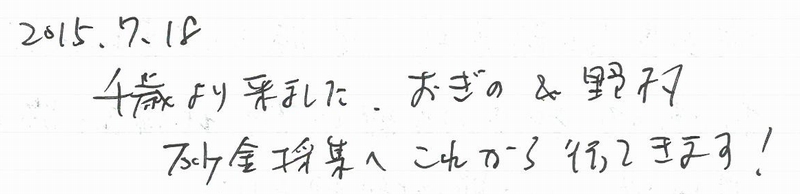 2015.7.18
千歳より来ました. おぎの & 野村
砂金採集へ これから 行ってきます!